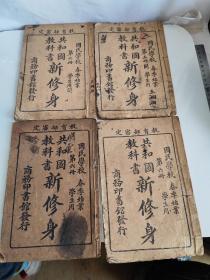 教育部審定
國民學校 春季始業
學生用
共和國
教科書
新修身
商務印書館發行
教育部審定
國民學校 春季始業
學生用
共和國
教科書
新修身
商務印書館發行
教育部審定
國民學校 春季始業
第六冊 學生用
共和國
教科書
新修身
商務印書館發行
教育部審定
國民學校 春季始業
第六冊 學生用
共和國
教科書
新修身
商務印書館發行